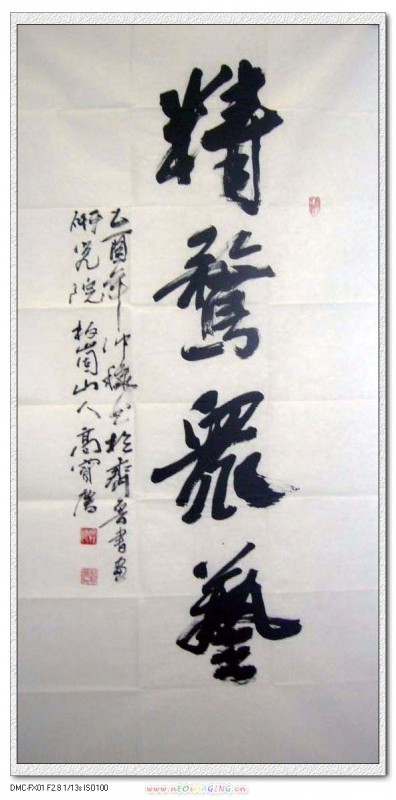 精騖眾藝
乙酉年仲秋书於齊魯書畫
研究院 板崮山人 高寶
DMC-FX01 F2.8 1/13s ISO100
www.nEOiMAGING.cn